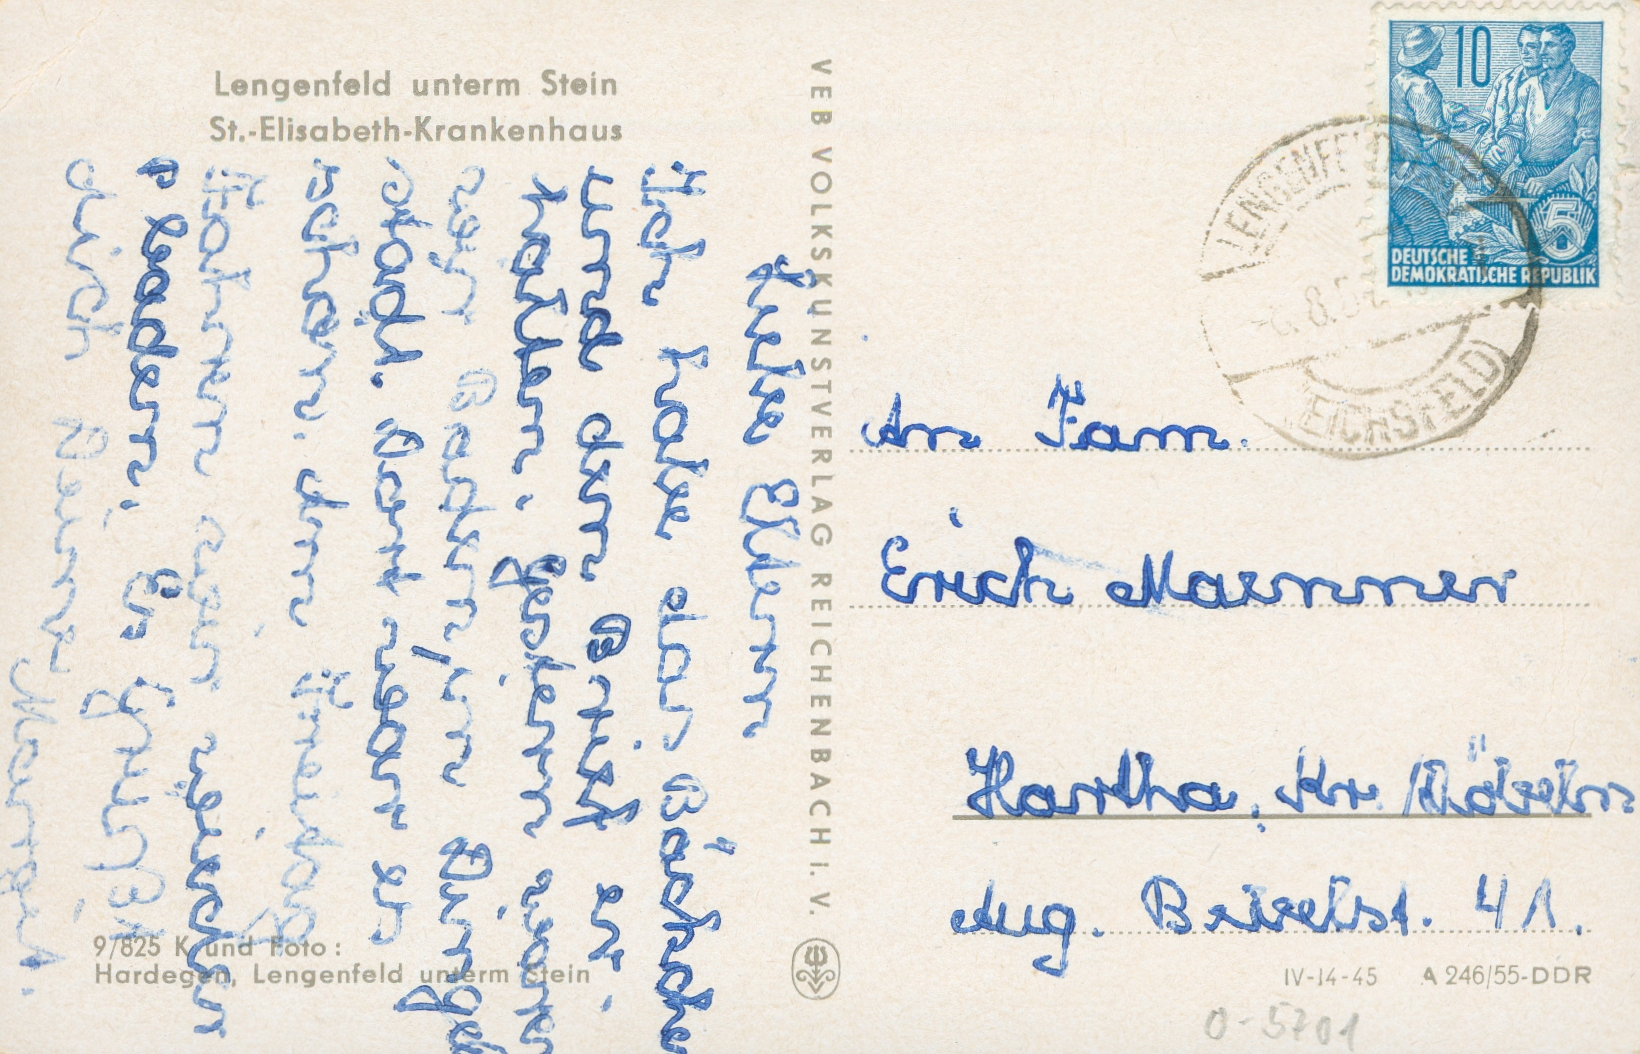 Lengenfeld unterm Stein
St.-Elisabeth-Krankenhaus
Liebe Eltern
Ich habe das Bädche
und den Brief er-
halten. Gestern ware
wir Baden, in Dinge
städt. Dort war es
schön. Am Freitag
fahren wir wieder
baden. Es grüßt
dich Deine Margit.
9/825 K und Foto:
Hardegen, Lengenfeld unterm Stein
VEB VOLKSKUNSTVERLAG REICHENBACH I. V.
10
5
DEUTSCHE
DEMOKRATISCHE REPUBLIK
LENGENFELD
8.5
EICHSFELD)
An Fam.
Erich Maenner
Hartha, Kr. Döbeln
Aug. Bebelst. 41.
IV-14-45 A 246/55-DDR
O-5701